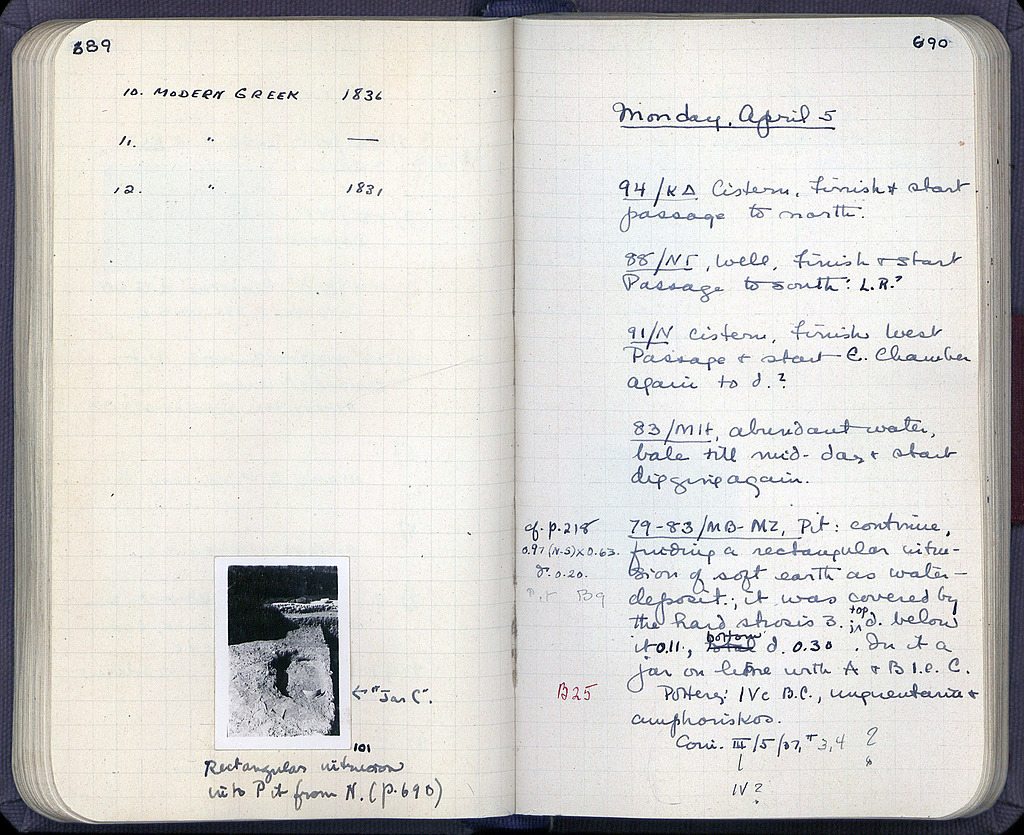 689
10. MODERN GREEK 1836
11. " —
12. " 1831
← "Jar C".
101
Rectangular intrusion
into Pit from N. (p. 690)
690
Monday, April 5
94/ΚΔ Cistern, Finish & start
passage to north.
88/ΝΓ, Well, Finish & start
Passage to south: L.R.?
91/N Cistern, Finish West
Passage & start E. Chamber
again to d.?
83/ΜΗ, abundant water,
bale till mid-day & start
digging again.
cf. p. 218
0.97 (N-S) x 0.63.
d. 0.20.
Pit B9
79-83/ΜΒ-ΜΖ, Pit: continue,
finding a rectangular intru-
sion of soft earth as water-
deposit; it was covered by
the hard strosis 3. top d. below
it 0.11, bottom d. 0.30. In it a
jar on line with A & B i.e. C.
B25
Pottery: IVc B.C., unguentaria &
amphoriskos.
Coin. III/5/37, # 3, 4 ?
IV ?